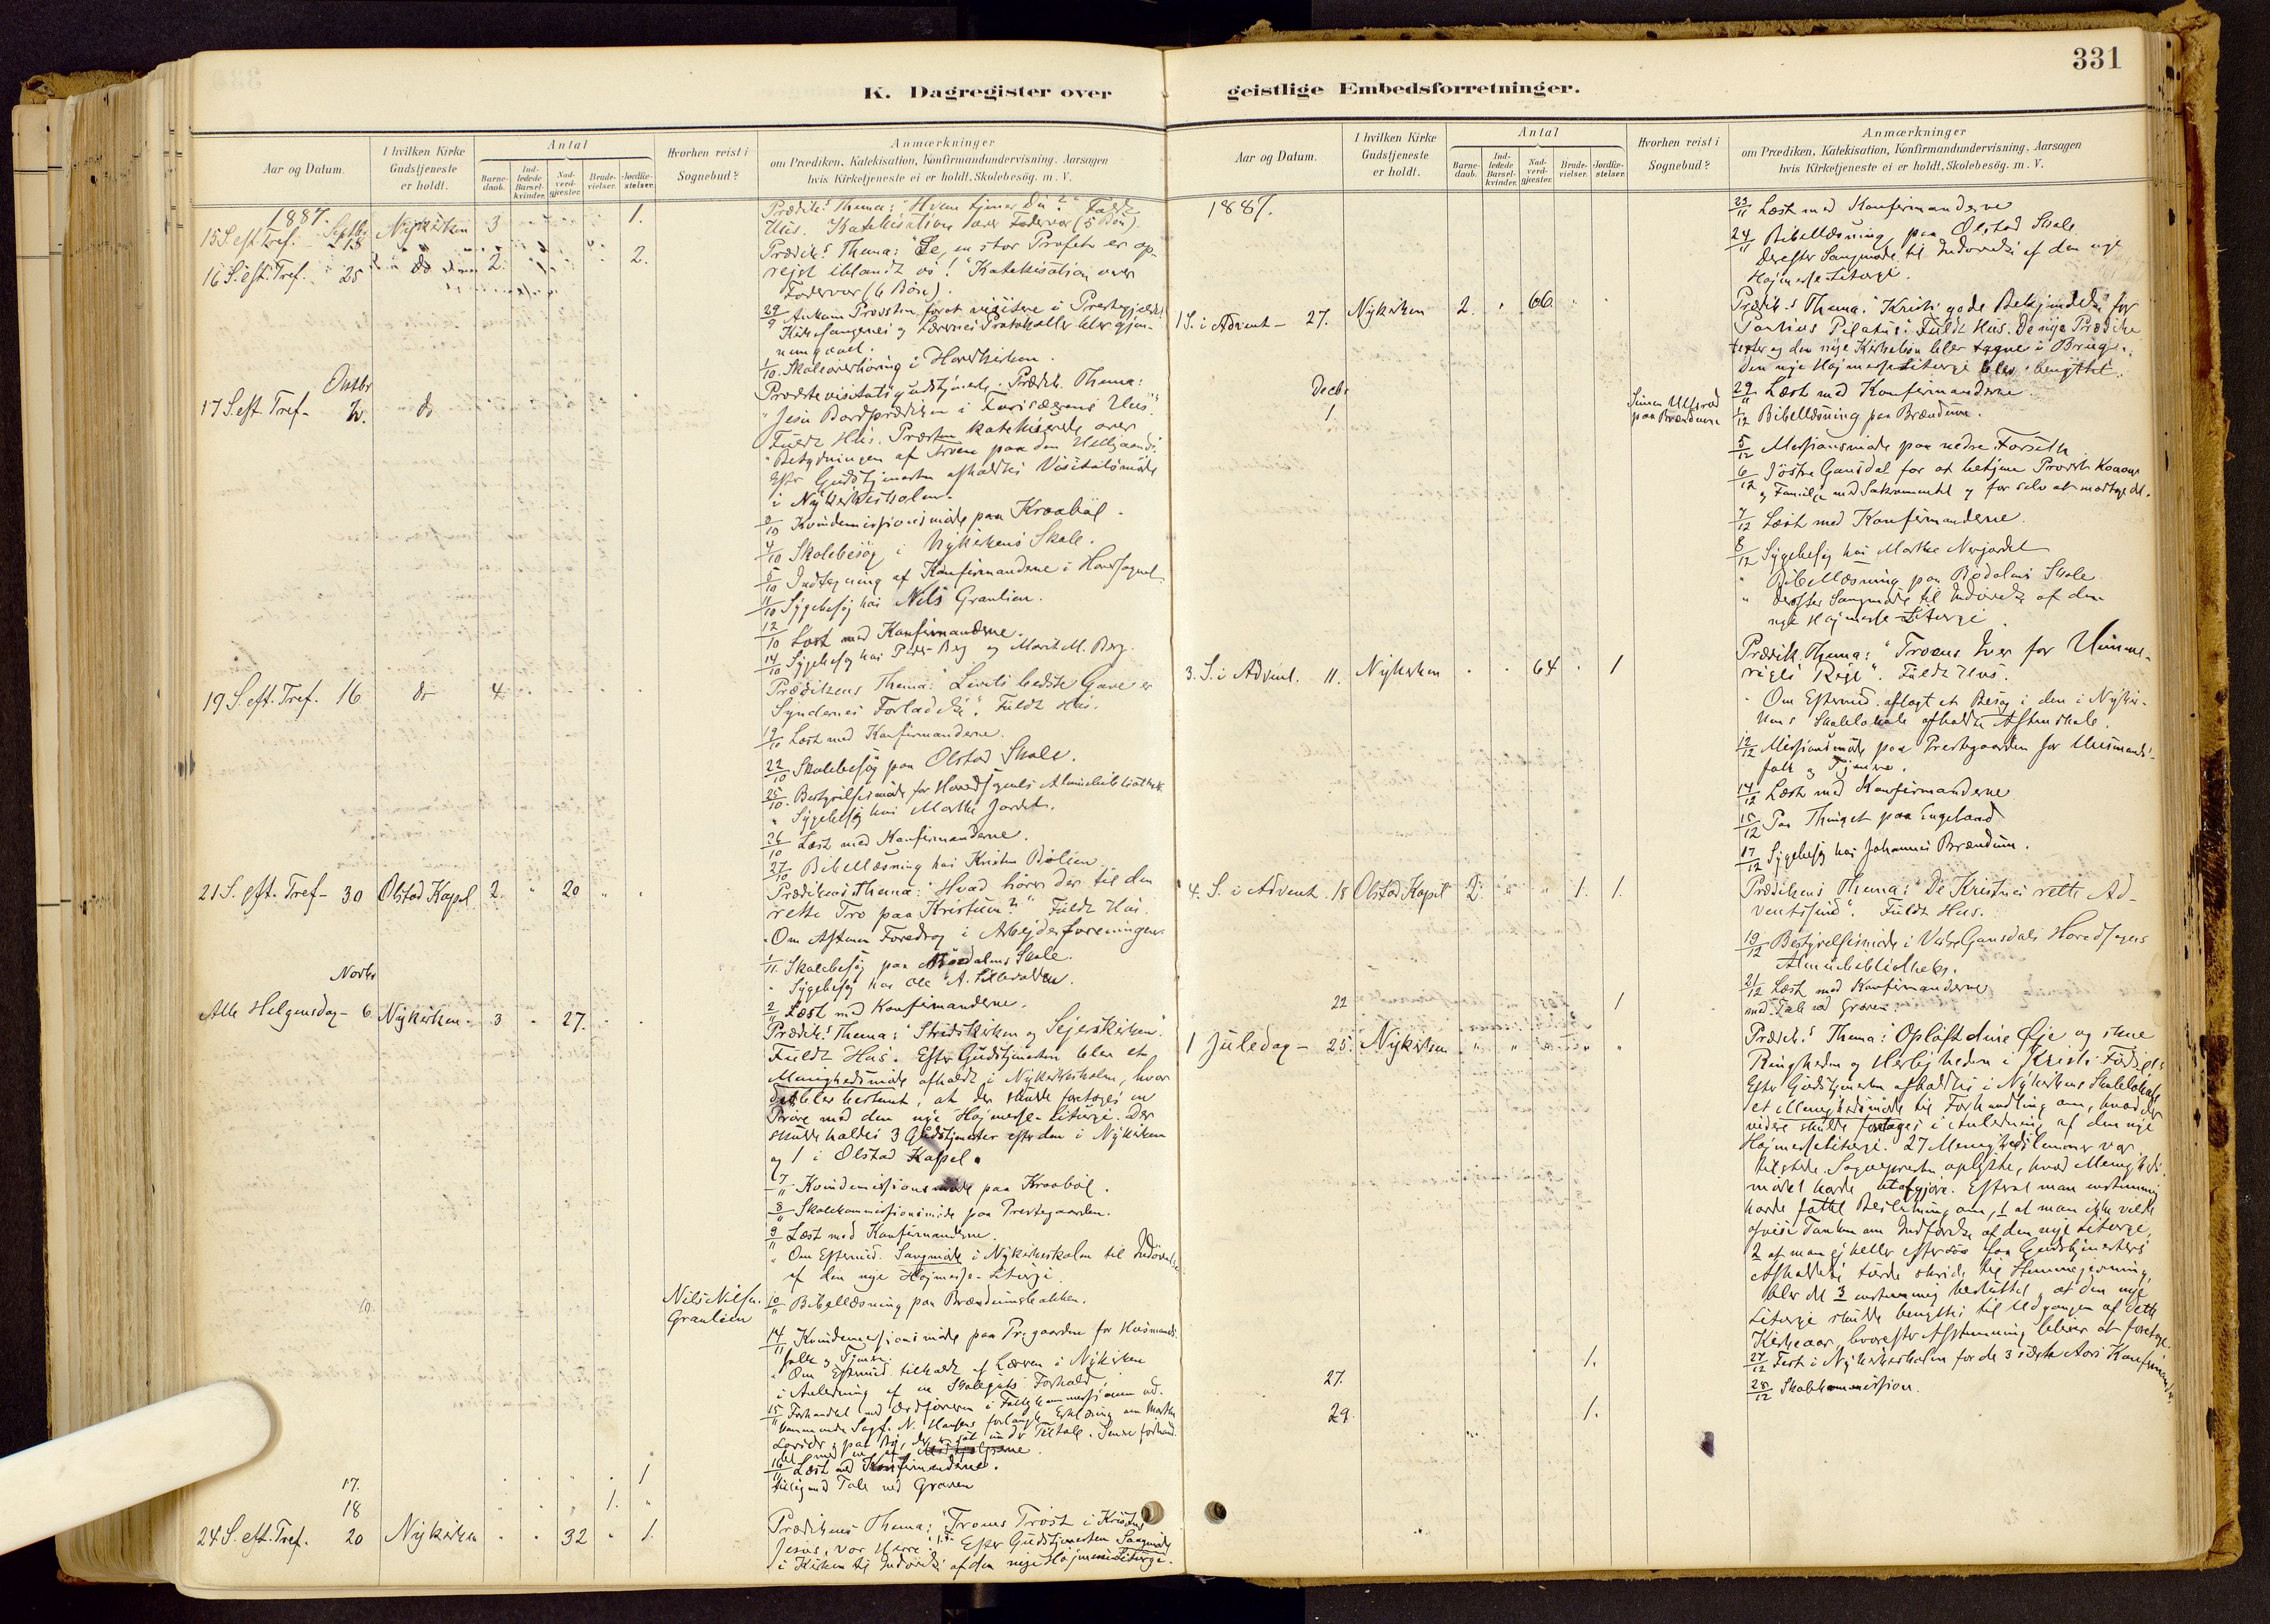 331
K. Dagregister over
geistlige Embedsforretninger.
Aar og Datum.
I hvilken Kirke
Gudstjeneste
er holdt.
Antal
Barne-
daab.
Ind-
ledede
Barsel-
kvinder.
Nad-
verd-
gjæster.
Brude-
vielser.
Jordfæ-
stelser.
Hvorhen reist i
Sognebud?
Anmærkninger
om Prædiken, Katekisation, Konfirmandundervisning, Aarsagen
hvis Kirketjeneste ei er holdt, Skolebesøg. m. V.
1887.
15 S. eft. Tref. Septbr 18 Nykirken 3 1.
Prædik.s Thema: "Hvem tjener Du?" Fuldt
Hus. Katekisation over Fadervor (5 Bøn).
16 S. eft. Tref. " 25 do 2. 2.
Prædik.s Thema: "Se, en stor Profet er op-
rejst iblandt os!" Katekisation over
Fadervor (6 Bøn).
29/9 Ankom Provsten forat visitere i Prestegjældet
Kirkesangernes og Lærernes Protokoller blev gjen-
nemgaaet.
1/10. Skoleoverhøring i Hovedkirken.
Oktbr
17 S. eft. Tref- 2. do
Provstevisitatsgudstjeneste. Prædik. Thema:
"Jesu Bordprædiken i Farisæerens Hus".
Fuldt Hus. Præsten katekiserede over
"Betydningen af Troen paa den Helligaand".
Efter Gudstjenesten afholdtes Visitatsmøde
i Nykirkeskolen.
3/10 Kvindemissionsmøde paa Kraabøl.
4/10 Skolebesøg i Nykirkens Skole.
5/10 Indtegning af Konfirmanderne i Hovedsognet
11/10 Sygebesøg hos Nils Granlien.
12/10 Læst med Konfirmanderne.
14/10 Sygebesøg hos Peder Berg og Marit M. Berg.
19 S. eft. Tref. 16 do 4
Prædikens Thema: "Livets bedste Gave er
Syndernes Forladelse". Fuldt Hus.
19/10 Læst med Konfirmanderne.
22/10 Skolebesøg paa Olstad Skole.
25/10. Bestyrelsesmøde for Hovedsognets Almuebibliothek
" Sygebesøg hos Marthe Jordet.
26/10 Læst med Konfirmanderne.
27/10 Bibellæsning hos Kristen Bølien.
21 S. eft. Tref- 30 Olstad Kapel 2. " 20 " "
Prædikens Thema: "Hvad hører der til den
rette Tro paa Kristum?" Fuldt Hus.
"Om Aftenen Foredrag i Arbejderforeningen.
1/11. Skolebesøg paa Bødalens Skole.
" Sygebesøg hos Ole A.
2/11 Læst med Konfirmanderne.
Novbr
Alle Helgensdag- 6. Nykirken 3 " 27.
Prædik.s Thema: "Stridskirken og Sejerskirken".
Fuldt Hus. Efter Gudstjenesten blev et
Menighedsmøde afholdt i Nykirkeskolen, hvor
det blev bestemt, at der skulde foretages en
Prøve med den nye Højmesse-Liturgi. Der
skulde holdes 3 Gudstjenester efter den i Nykirken
og 1 i Olstad Kapel.
7/11 Kvindemissionsmøde paa Kraabøl.
8/11 Skolekommissionsmøde paa Prestegaarden.
9/11 Læst med Konfirmanderne.
" Om Eftermid. Sangmøde i Nykirkeskolen til Indøvelse
af den nye Højmesse-Liturgi.
10. Nils Nilsen
Granlien
10/11 Bibellæsning paa Brændumsbakken.
14/11 Kvindemissionsmøde paa Pr.gaarden for Husmands-
folk og Tjenere.
" Om Eftermid. tilkaldt af Læreren i Nykirken
i Anledning af en Skoleguts Forhold.
15/11 Forhandlet med Ordføreren i Fattigkommissionen
16/11 Læst med Konfirmanderne.
17. 1
med Tale ved Graven
18 1. "
24 S. eft. Tref. 20 Nykirken " " 32 " 1.
Prædikens Thema: "Troens Trøst i Kristus
Jesus, vor Herre". Efter Gudstjenesten Sangmøde
i Kirken til Indøvelse af den nye Højmesseliturgi.
Aar og Datum.
I hvilken Kirke
Gudstjeneste
er holdt.
Antal
Barne-
daab.
Ind-
ledede
Barsel-
kvinder.
Nad-
verd-
gjæster.
Brude-
vielser.
Jordfæ-
stelser.
Hvorhen reist i
Sognebud?
Anmærkninger
om Prædiken, Katekisation, Konfirmandundervisning, Aarsagen
hvis Kirketjeneste ei er holdt, Skolebesøg. m. V.
1887.
23/11 Læst med Konfirmanderne
24/11 Bibellæsning paa Olstad Skole.
Derefter Sangmøde til Indøvelse af den nye
Højmesse-Liturgi.
1 S. i Advent- 27. Nykirken 2. " 66.
Prædik.s Thema: "Kristi gode Bekjendelse for
Pontius Pilatus". Fuldt Hus. De nye Prædike
texter og den nye Kirkebøn blev tagne i Brug.
Den nye Højmesseliturgi blev benyttet.
29/11 Læst med Konfirmanderne.
Decbr
1
Simen Ulfsrød
paa Brændum
1/12 Bibellæsning paa Brændum.
5/12 Missionsmøde paa nedre Forseth
6/12 I østre Gausdal for at betjene Provst
og Familje med Sakramentet og for selv at modtage det.
7/12 Læst med Konfirmanderne.
8/12 Sygebesøg hos Marthe Nerjordet
" Bibellæsning paa Bødalens Skole
" Derefter Sangmøde til Indøvelse af den
nye Højmesse-Liturgi.
3. S. i Advent. 11. Nykirken " " 64 " 1
Prædik. Thema: "Troens Iver for Himme-
rigets Rige". Fuldt Hus.
" Om Eftermid. aflagt et Besøg i den i Nykir-
kens Skolelokale afholdte Aftenskole.
12/12 Missionsmøde paa Prestegaarden for Husmands-
folk og Tjenere.
14/12 Læst med Konfirmanderne
15/12 Paa Thinget paa Engeland
17/12 Sygebesøg hos Johannes Brændum.
4. S. i Advent. 18 Olstad Kapel 2. " " 1. 1.
Prædikens Thema: "De Kristnes rette Ad-
ventssind". Fuldt Hus.
19/12 Bestyrelsesmøde i Vestre Gausdals Hovedsogns
Almuebibliothek.
21/12 Læst med Konfirmanderne
22 1
med Tale ved Graven.
1 Juledag- 25. Nykirken " " " " "
Prædik.s Thema: Opløft dine Øjne og skue
Ringheden og Herligheden i Kristi Fødsel.
Efter Gudstjenesten afholdtes i Nykirkens Skolelokale
et Menighedsmøde til Forhandling om, hvad der
videre skulde foretages i Anledning af den nye
Højmesseliturgi. 27 Menighedslemmer var
tilstede. Sognepresten oplyste, hvad Menigheds-
mødet havde at afgjøre. Efterat man enstemmig
havde fattet Beslutning om, 1 at man ikke vilde
afvise Tanken om Indførelse af den nye Liturgi,
2 at man ej heller efter saa faa Gudstjenesters
Afholdelse turde skride til Stemmegivning,
blev det 3 enstemmig besluttet, at den nye
Liturgi skulde benyttes til Udgangen af dette
Kirkeaar, hvorefter Afstemning bliver at foretage.
27. 1.
27/12 Fest i Nykirkeskolen for de 3 sidste Aars Konfirmander.
28/12 Skolekommission.
29. 1.